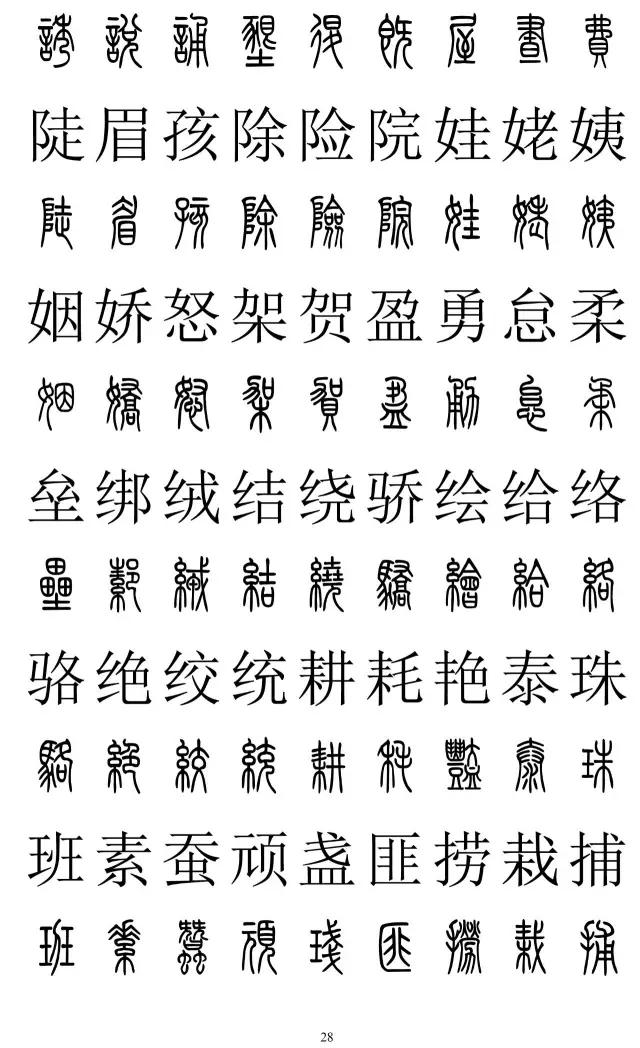 說誦墾退既屋晝費
陡眉孩除险院娃姥姨
陡眉孩除險院娃姥姨
姻娇怒架贺盈勇怠柔
姻嬌怒架賀盈勇怠柔
垒绑绒结绕骄绘给络
壘綁絨結繞驕繪給絡
骆绝绞统耕耗艳泰珠
駱絕絞統耕秏豔泰珠
班素蚕顽盏匪捞栽捕
班素蠶頑琖匪撈栽捕
28